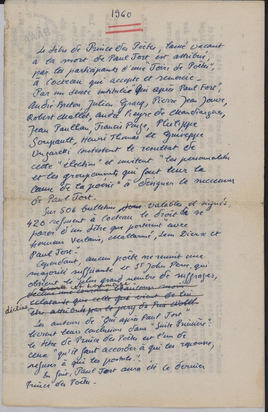 1960
Le titre de Prince des Poètes, laissé vacant
à la mort de Paul Fort est attribué,
par les participants d'une "Foire de Poètes",
à Cocteau qui accepte et remercie.
Par un texte intitulé qui après Paul Fort,
André Breton, Julien Gracq, Pierre Jean Jouve,
Robert Mallet, André Pieyre de Mandiargues,
Jean Paulhan, Francis Ponge, Philippe
Soupault, Henri Thomas et Giuseppe
Ungaretti, contestent le résultat de
cette "élection" et invitent "les personnalités
et les groupements qui font leur la
cause de la poésie" à désigner le successeur
de Paul Fort.
Sur 506 bulletins valables et signés,
420 refusent à Cocteau le droit de se
parer d'un titre que portèrent avec
honneur Verlaine, Mallarmé, Léon Dierx et
Paul Fort.
Cependant, aucun poète ne réunit une
majorité suffisante et St John Perse, qui
obtient le plus grand nombre de suffrages,
décline
Les auteurs de "Qui après Paul Fort"
tirent leurs conclusions dans
le titre de Prince des Poètes est l'un de
ceux "qu'il faut accorder à qui les repousse,
refuser à qui les postule".
Paul Fort aura été le dernier
Prince des Poètes.